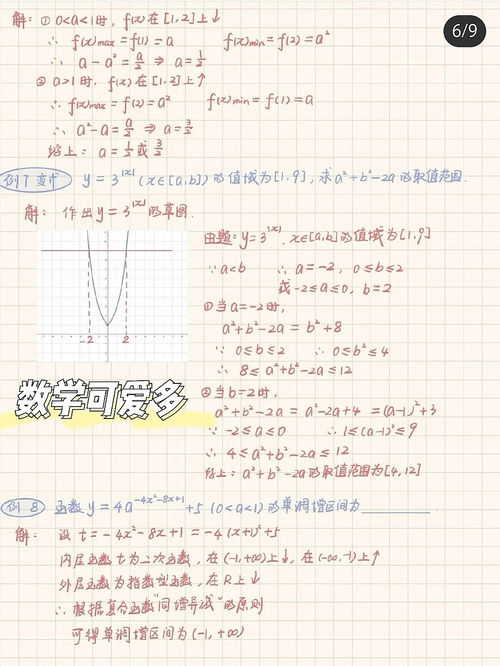 6/9
解：① 0<a<1时，f(x)在[1,2]上↓
∴ f(x)max=f(1)=a  f(x)min=f(2)=a²
∴ a-a²=a/2 ⇒ a=1/2
② a>1时，f(x)在[1,2]上↑
∴ f(x)max=f(2)=a²  f(x)min=f(1)=a
∴ a²-a=a/2 ⇒ a=3/2
综上：a=1/2或3/2
例7变式 y=3^|x| (x∈[a,b])的值域为[1,9]，求a²+b²-2a的取值范围.
解：作出y=3^|x|的草图.
-2 2
由题：y=3^|x|，x∈[a,b]的值域为[1,9]
∵a<b ∴a=-2，0≤b≤2
或-2≤a≤0，b=2
①当a=-2时，
a²+b²-2a=b²+8
∵0≤b≤2 ∴0≤b²≤4
∴8≤a²+b²-2a≤12
②当b=2时，
a²+b²-2a=a²-2a+4=(a-1)²+3
∵-2≤a≤0 ∴1≤(a-1)²≤9
∴4≤a²+b²-2a≤12
综上：a²+b²-2a的取值范围为[4,12]
数学可爱多
例8 函数y=4a^(-4x²-8x+1)+5 (0<a<1)的单调增区间为______.
解：设t=-4x²-8x+1=-4(x+1)²+5
内层函数t为二次函数，在(-1,+∞)上↓，在(-∞,-1)上↑
外层函数为指数型函数，在R上↓
∴根据复合函数"同增异减"的原则
可得单调增区间为(-1,+∞)